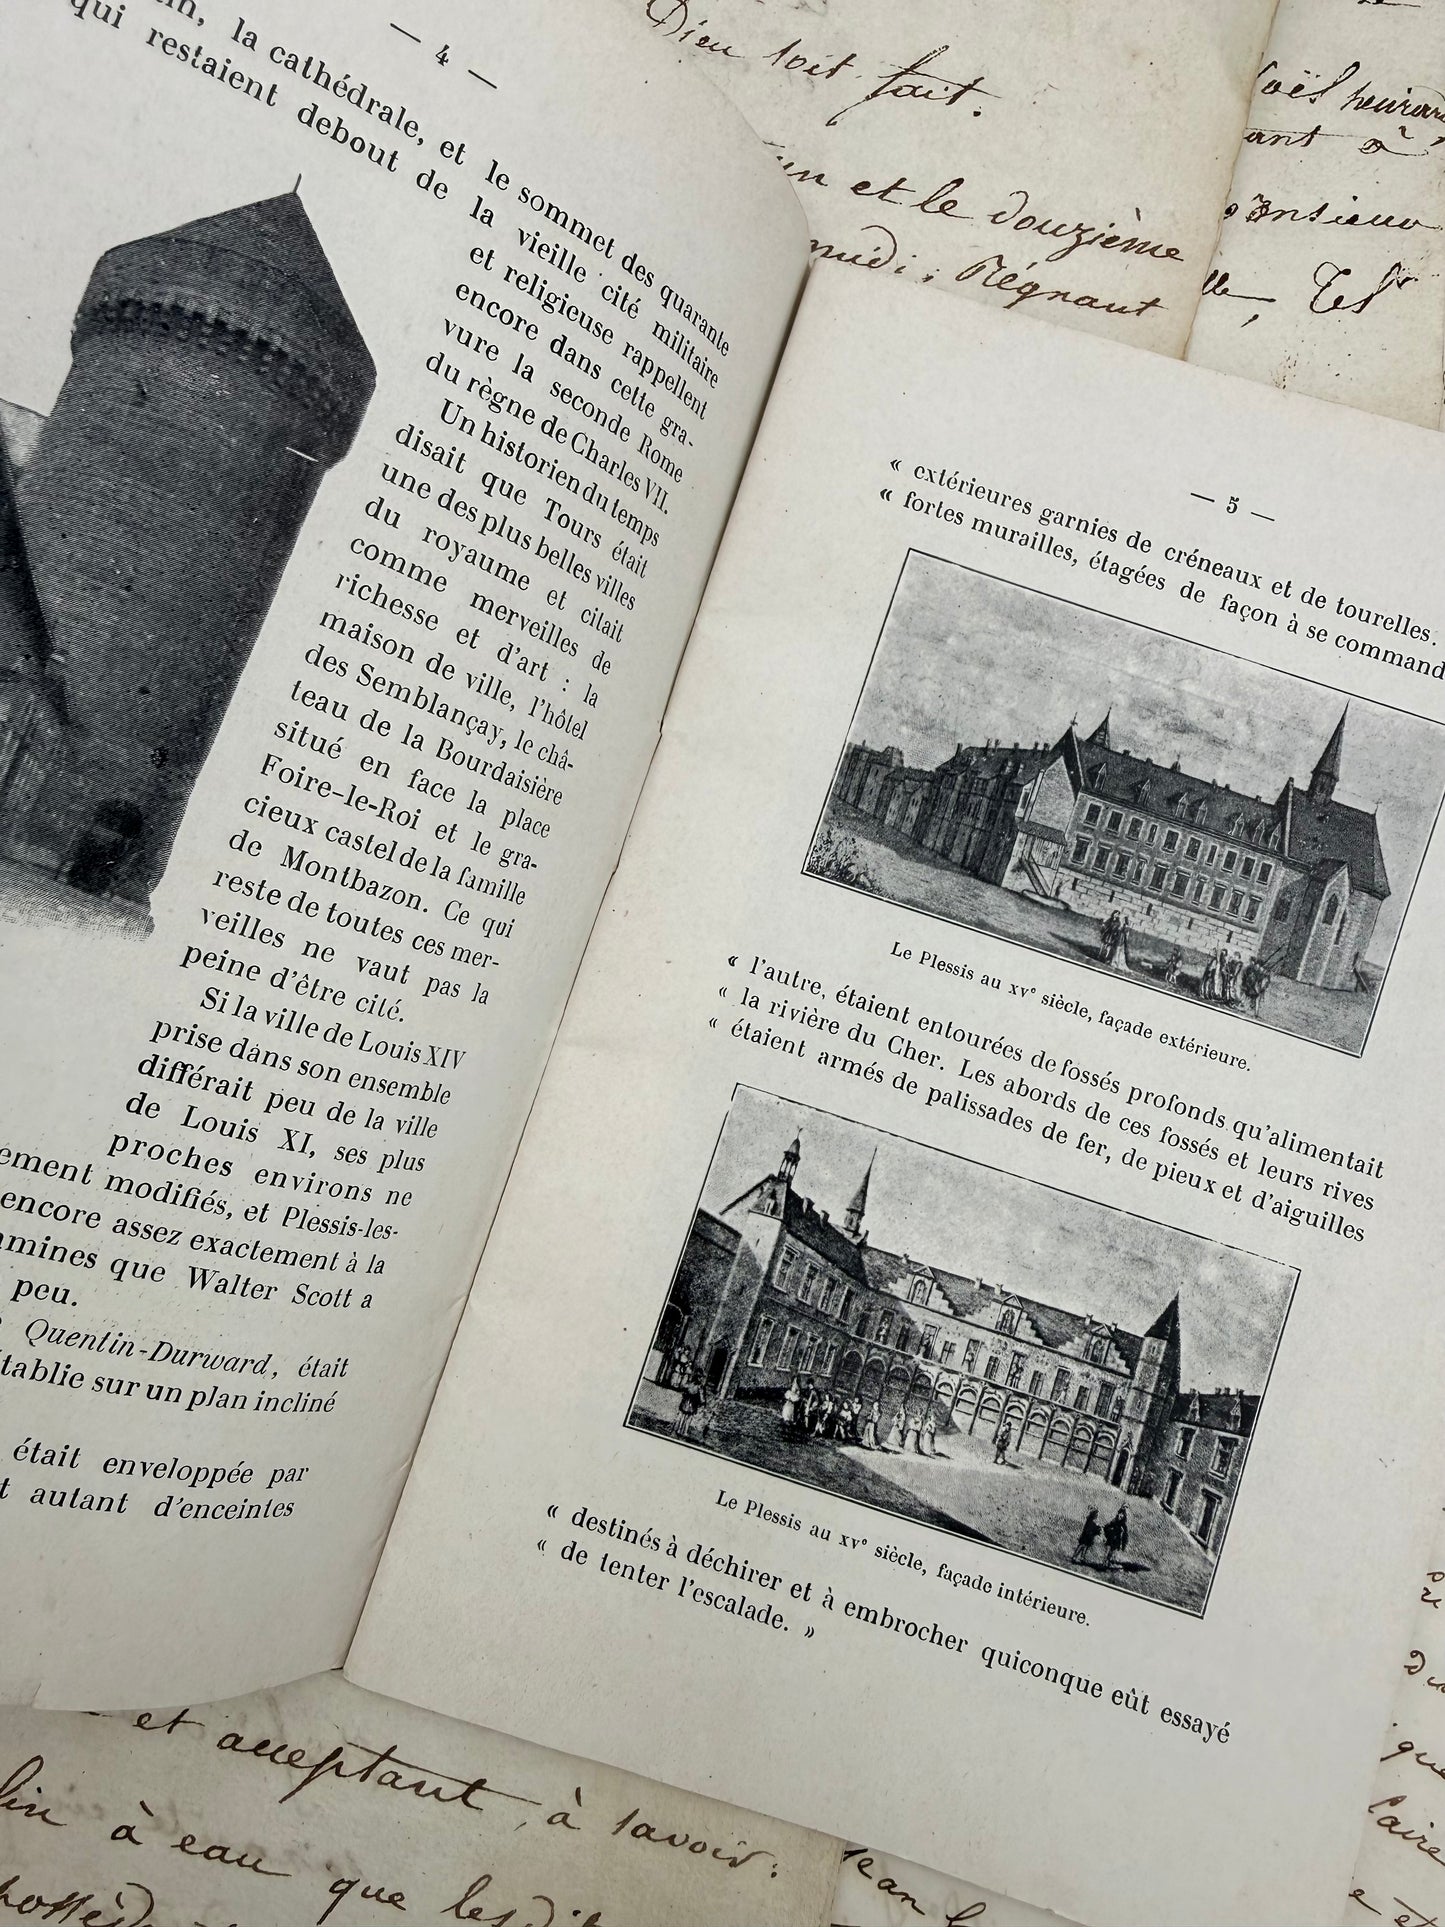 — 4 —
la cathédrale, et le sommet des quarante
qui restaient debout de la vieille cité militaire
et religieuse rappellent
encore dans cette gra-
vure la seconde Rome
du règne de Charles VII.
Un historien du temps
disait que Tours était
une des plus belles villes
du royaume et citait
comme merveilles de
richesse et d'art : la
maison de ville, l'hôtel
des Semblançay, le châ-
teau de la Bourdaisière
situé en face la place
Foire-le-Roi et le gra-
cieux castel de la famille
de Montbazon. Ce qui
reste de toutes ces mer-
veilles ne vaut pas la
peine d'être cité.
Si la ville de Louis XIV
prise dans son ensemble
différait peu de la ville
de Louis XI, ses plus
proches environs ne
ement modifiés, et Plessis-les-
encore assez exactement à la
amines que Walter Scott a
peu.
Quentin-Durward, était
établie sur un plan incliné
était enveloppée par
t autant d'enceintes
— 5 —
« extérieures garnies de créneaux et de tourelles.
« fortes murailles, étagées de façon à se command
Le Plessis au XVe siècle, façade extérieure.
« l'autre, étaient entourées de fossés profonds qu'alimentait
« la rivière du Cher. Les abords de ces fossés et leurs rives
« étaient armés de palissades de fer, de pieux et d'aiguilles
Le Plessis au XVe siècle, façade intérieure.
« destinés à déchirer et à embrocher quiconque eût essayé
« de tenter l'escalade. »
Dieu soit fait.
un et le douzième
midi; Régnaut
ant à
et acceptant, à savoir:
à eau que les dit